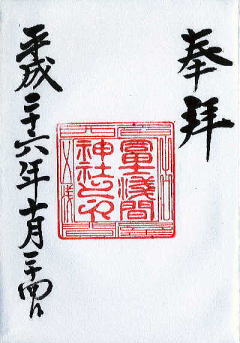 奉拝
冨士浅間
神社之印
平成二十六年十月二十四日